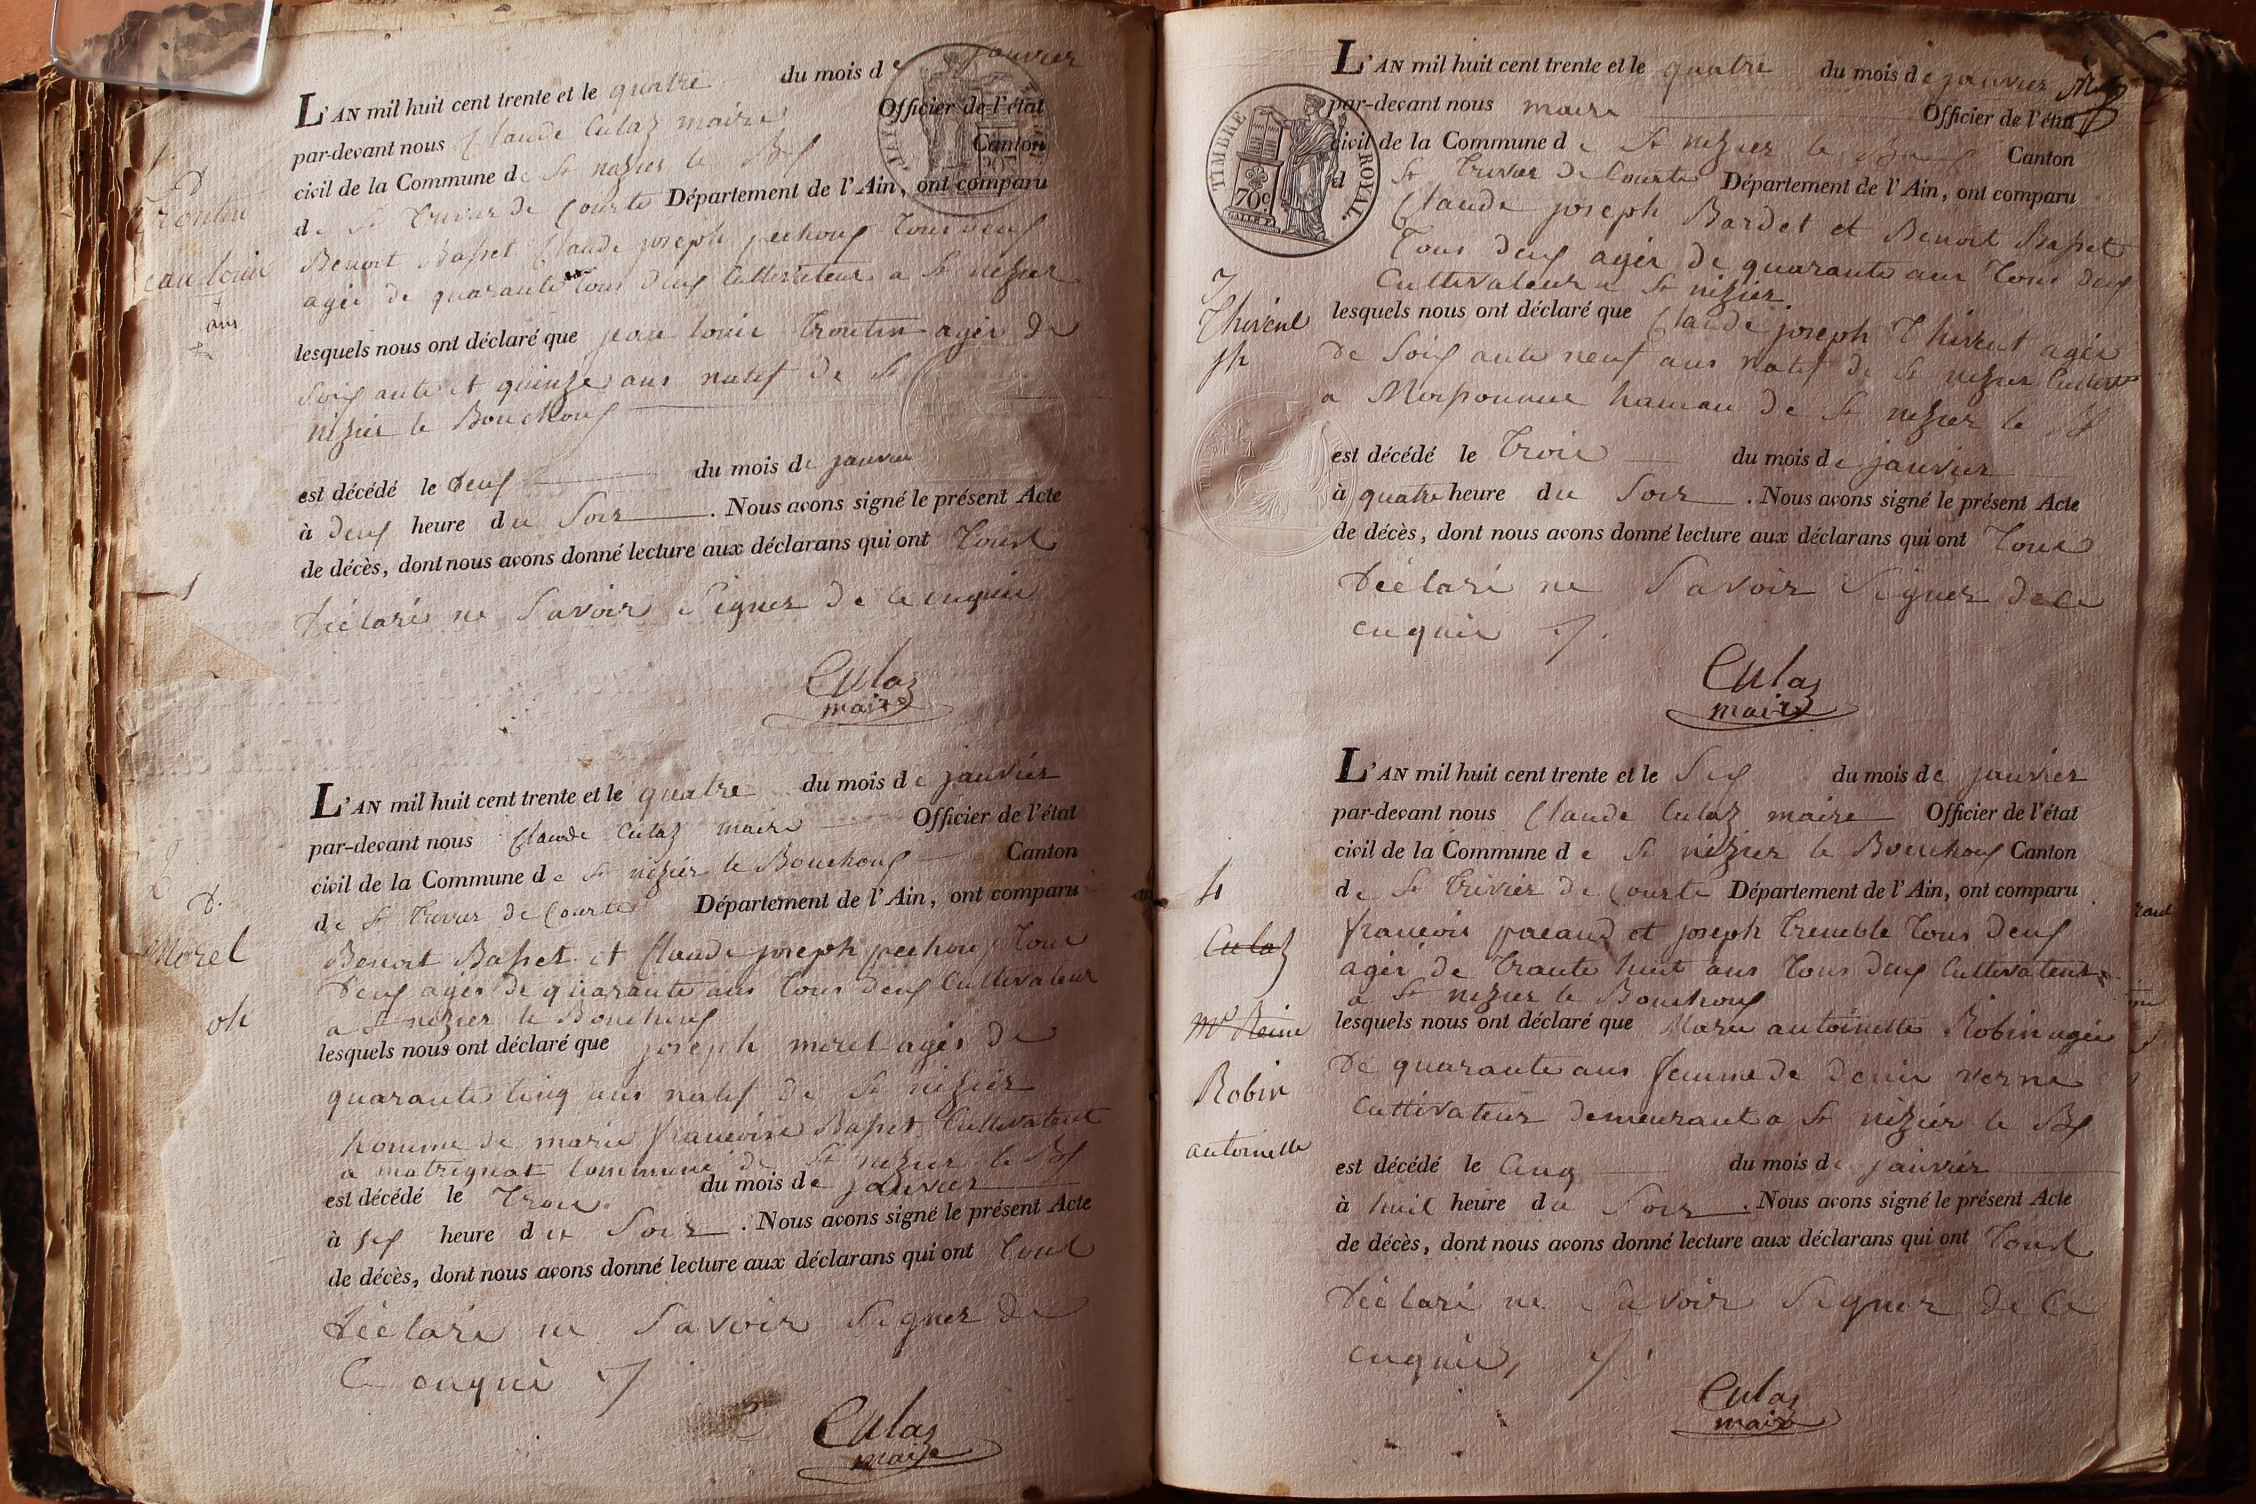 L'AN mil huit cent trente et le quatre du mois de janvier
par-devant nous Claude Culaz maire Officier de l'état
civil de la Commune de St nizier le Bx Canton
de St trivier de Courte Département de l'Ain, ont comparu
Benoit Basset Claude joseph pechoux Tous deux
agés de quarante Tous deux Cultivateur a St nizier
lesquels nous ont déclaré que jean louis trontin agés de
Soixante et quinze ans natif de St
nizier le Bouchoux
est décédé le deux du mois de janvier
à deux heure du Soir. Nous avons signé le présent Acte
de décès, dont nous avons donné lecture aux déclarans qui ont Tous
déclaré ne Savoir Signer de ce enquis
Culaz
maire
ans
L'AN mil huit cent trente et le quatre du mois de janvier
par-devant nous Claude Culaz maire Officier de l'état
civil de la Commune de St nizier le Bouchoux Canton
de St trivier de Courte Département de l'Ain, ont comparu
Benoit Basset et Claude joseph pechoux Tous
deux agés de quarante ans Tous deux Cultivateur
a St nizier le Bouchoux
lesquels nous ont déclaré que joseph morel agés de
quarante Cinq ans natif de St nizier
homme de marie francoise Basset Cultivateur
a matrignat Commune de St nizier le Bx
est décédé le Trois du mois de janvier
à six heure du Soir. Nous avons signé le présent Acte
de décès, dont nous avons donné lecture aux déclarans qui ont Tous
déclaré ne Savoir Signer de
Ce enquis
Culaz
maire
D.
Morel
ph
L'AN mil huit cent trente et le quatre du mois de janvier
par-devant nous maire Officier de l'état
civil de la Commune de St nizier le Bx Canton
d St trivier de Courte Département de l'Ain, ont comparu
Claude joseph Bardet et Benoit Basset
Tous deux agés de quarante ans Tous deux
Cultivateur a St nizier
lesquels nous ont déclaré que Claude joseph Thivent agés
de Soixante neuf ans natif de St nizier
a hameau de St nizier le Bx
est décédé le Trois du mois de janvier
à quatre heure du Soir. Nous avons signé le présent Acte
de décès, dont nous avons donné lecture aux déclarans qui ont Tous
déclaré ne Savoir Signer de ce
enquis
Culaz
maire
TIMBRE ROYAL.
70c.
Thivent
jh
L'AN mil huit cent trente et le Six du mois de janvier
par-devant nous Claude Culaz maire Officier de l'état
civil de la Commune de St nizier le Bouchoux Canton
de St trivier de Courte Département de l'Ain, ont comparu
francois pacaud et joseph tremble Tous deux
agés de trante huit ans Tous deux Cultivateur
a St nizier le Bouchoux
lesquels nous ont déclaré que Marie antoinette Robin agés
de quarante ans femme de denis verne
Cultivateur demeurant a St nizier le Bx
est décédé le Cinq du mois de janvier
à huit heure du Soir. Nous avons signé le présent Acte
de décès, dont nous avons donné lecture aux déclarans qui ont Tous
déclaré ne Savoir Signer de Ce
enquis,
Culaz
maire
4
Culaz
Robin
antoinette